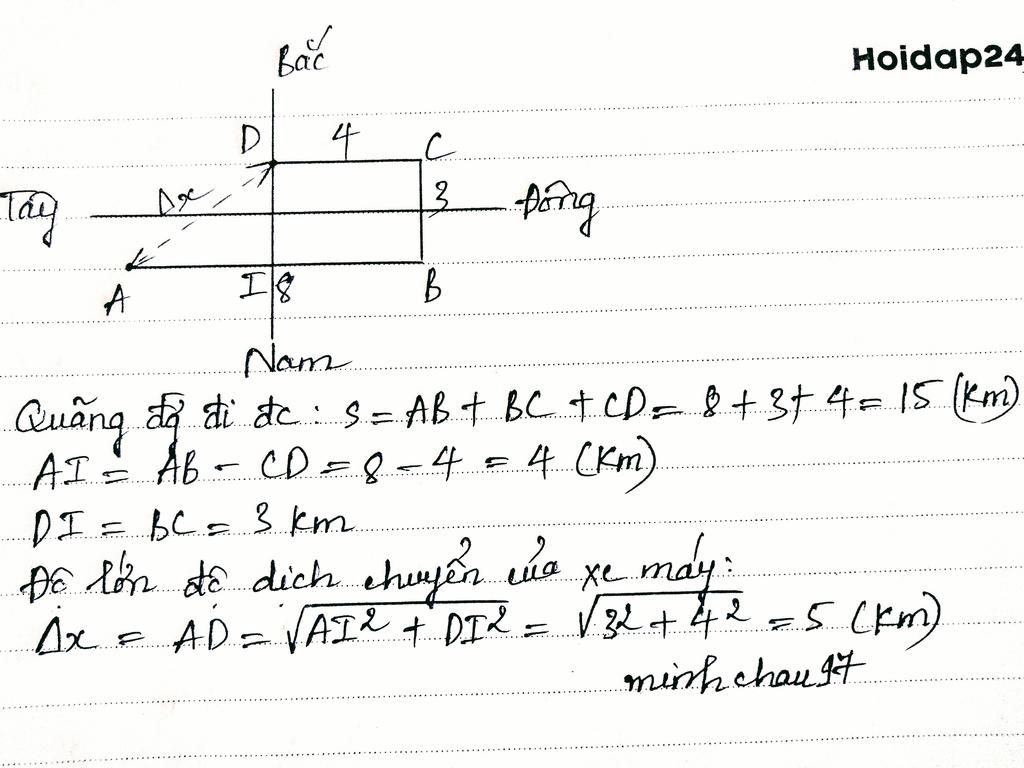 Bắc
Hoidap24
D 4 C
Δx
Tây 3 Đông
A I 8 B
Nam
Quãng đg đi đc : S = AB + BC + CD = 8 + 3 + 4 = 15 (Km)
AI = AB - CD = 8 - 4 = 4 (Km)
DI = BC = 3 Km
Độ lớn độ dịch chuyển của xe máy:
Δx = AD = √AI² + DI² = √3² + 4² = 5 (Km)
minhchau97